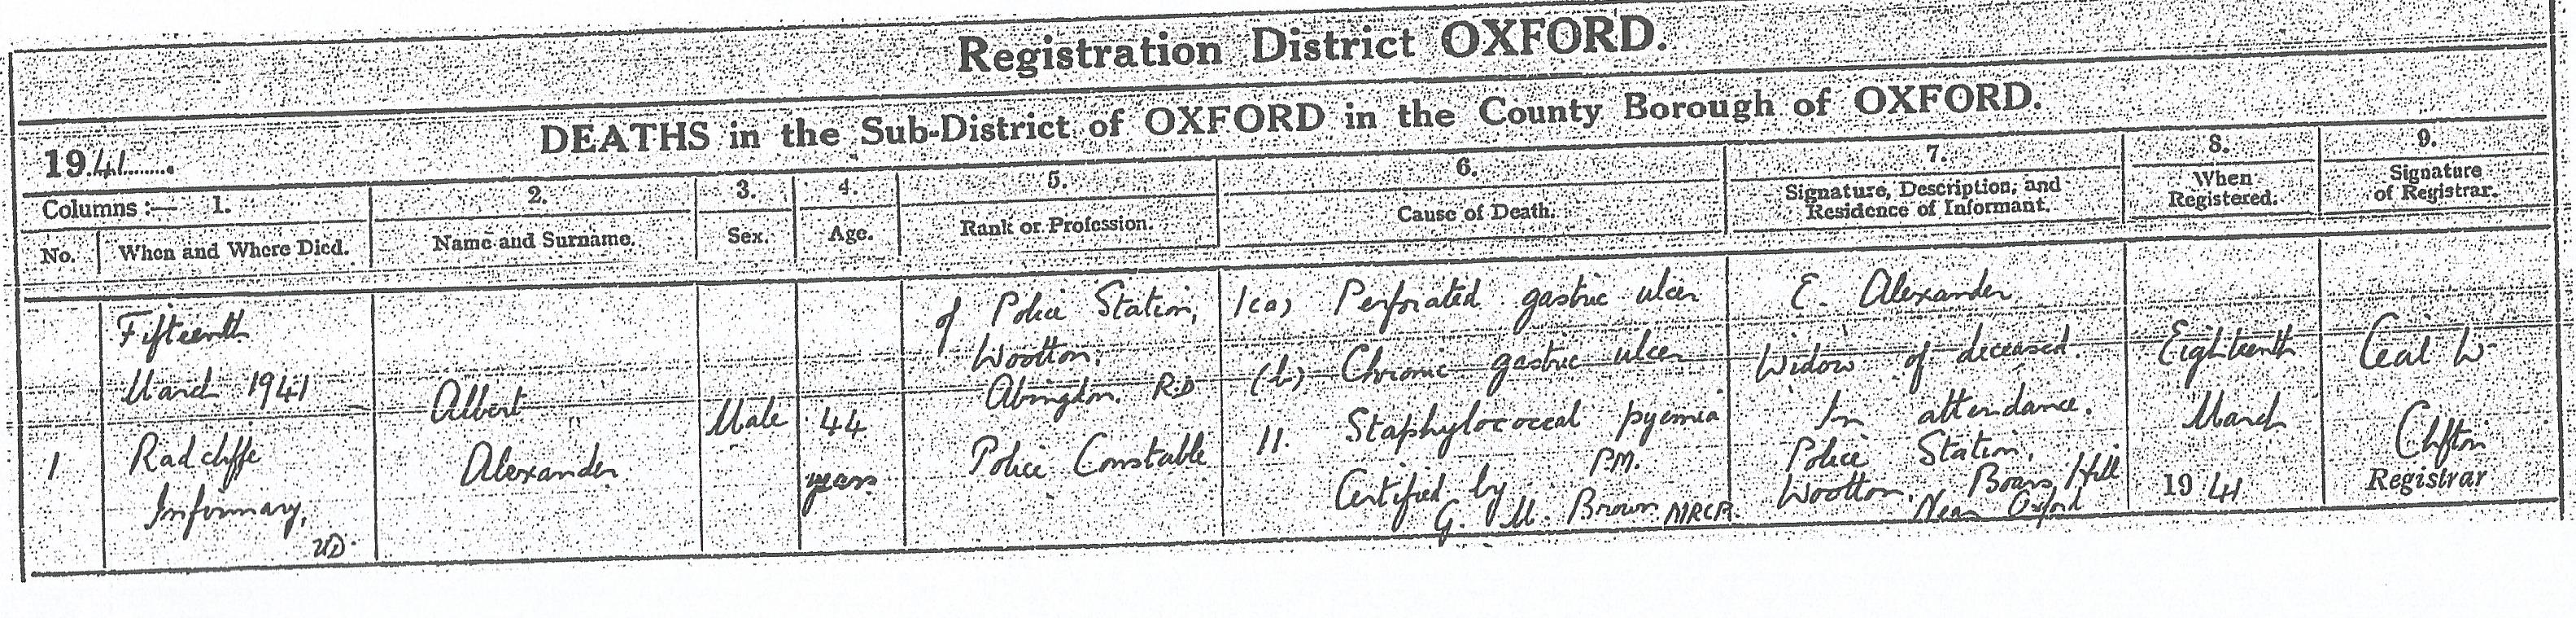 Registration District OXFORD.
DEATHS in the Sub-District of OXFORD in the County Borough of OXFORD.
1941
Columns :— 1. 2. 3. 4. 5. 6. 7. 8. 9.
No. When and Where Died. Name and Surname. Sex. Age. Rank or Profession. Cause of Death. Signature, Description, and Residence of Informant. When Registered. Signature of Registrar.
1
Fifteenth
March 1941
Radcliffe
Infirmary,
UD.
Albert
Alexander
Male
44
years
of Police Station,
Wootton,
Abingdon. R.D
Police Constable
1(a) Perforated gastric ulcer
(b) Chronic gastric ulcer
11. Staphylococcal pyemia
P.M.
Certified by
G. M. Brown MRCP.
E. Alexander
Widow of deceased.
In attendance.
Police Station,
Wootton, Boars Hill
Near Oxford
Eighteenth
March
1941
Cecil W
Clifton
Registrar